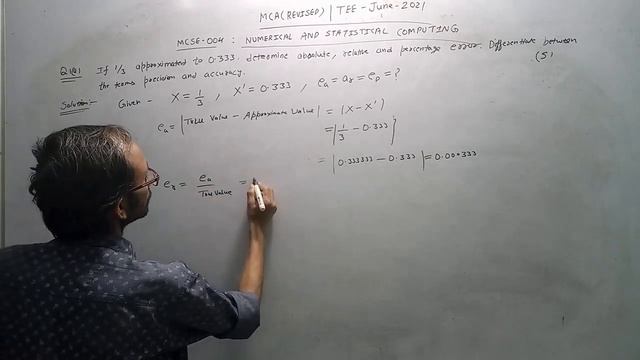 MCA(REVISED) | TEE - June-2021
MCSE-004 : NUMERICAL AND STATISTICAL COMPUTING
Q1(a) If 1/3 approximated to 0.333, determine absolute, relative and percentage error. Differentiate between
the terms precision and accuracy. (5)
Solution:- Given - X = 1/3 , X' = 0.333 , ea = ar = ep = ?
ea = |True Value - Approximate Value| = |X - X'|
= |1/3 - 0.333|
= |0.333333 - 0.333| = 0.000333
er = ea / True Value =